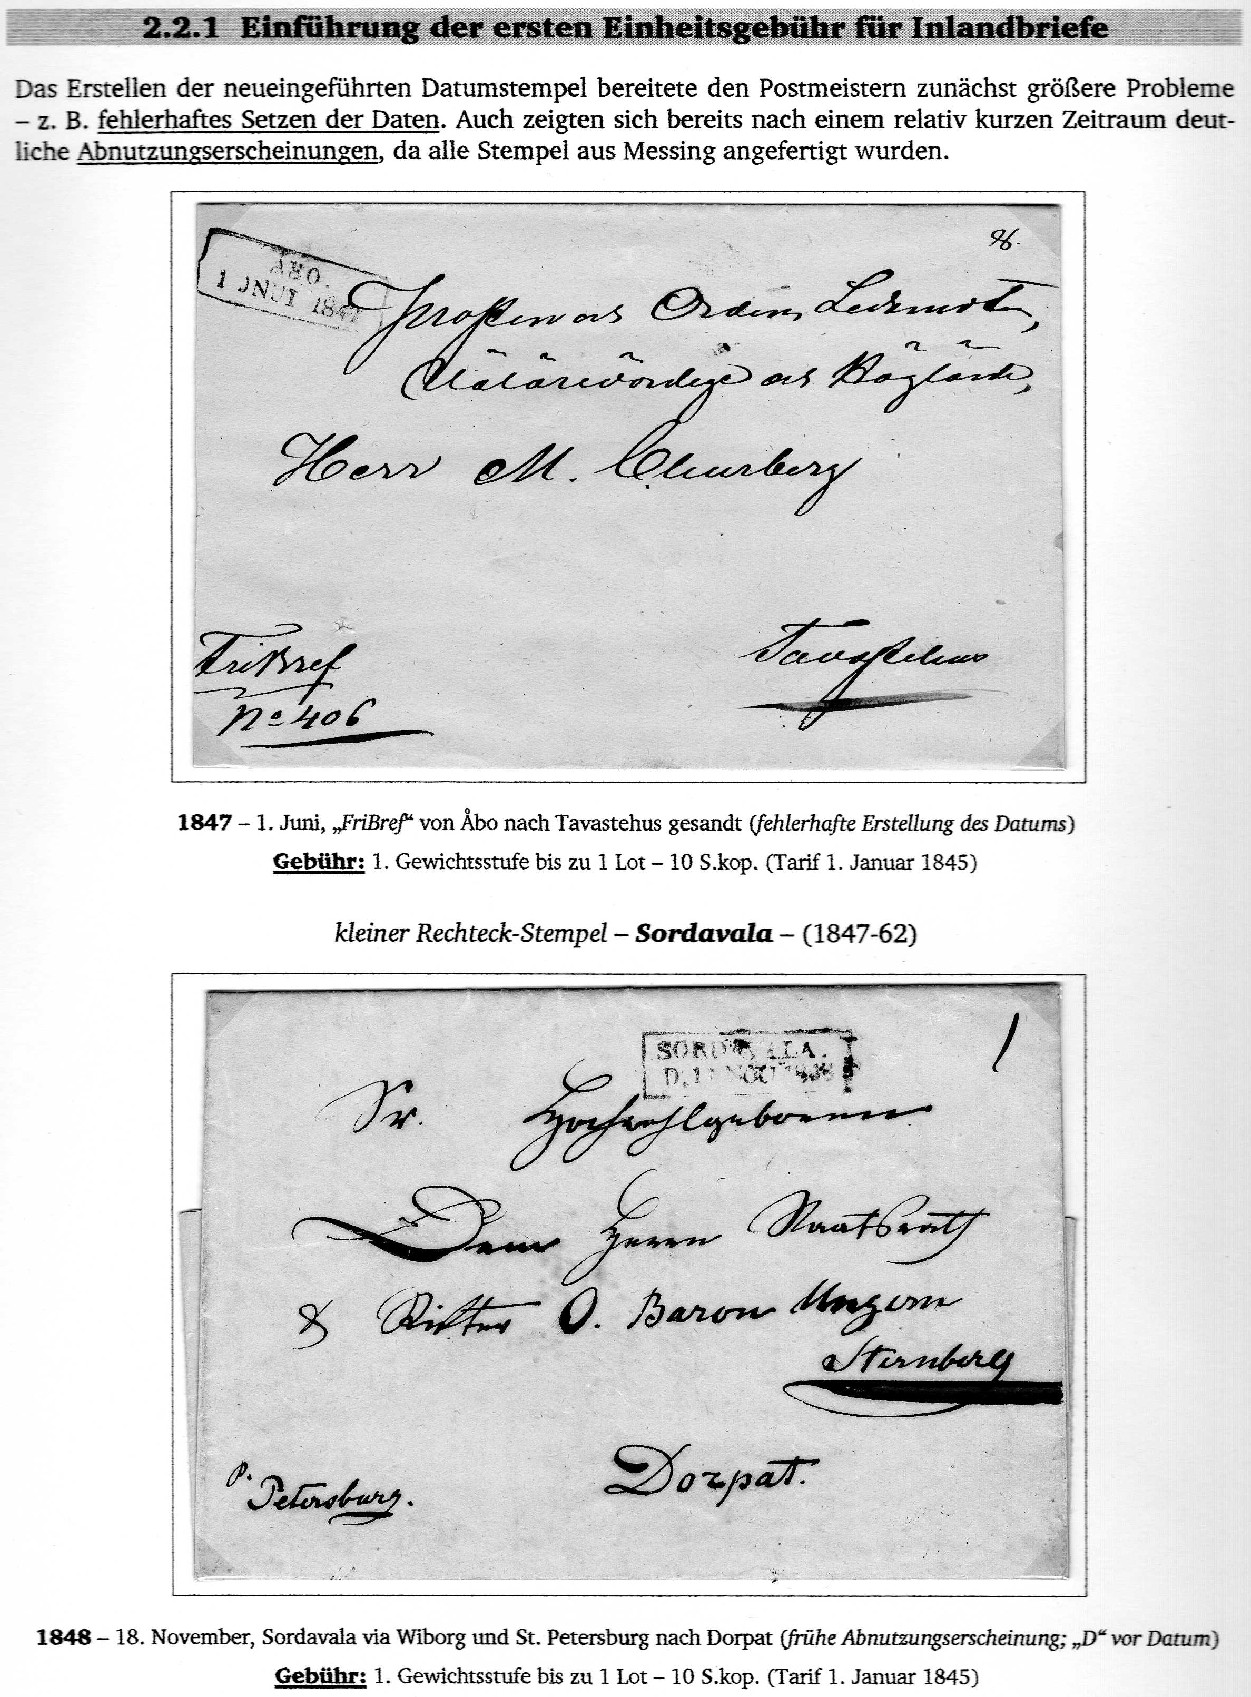 2.2.1 Einführung der ersten Einheitsgebühr für Inlandbriefe
Das Erstellen der neueingeführten Datumstempel bereitete den Postmeistern zunächst größere Probleme
– z. B. fehlerhaftes Setzen der Daten. Auch zeigten sich bereits nach einem relativ kurzen Zeitraum deut-
liche Abnutzungserscheinungen, da alle Stempel aus Messing angefertigt wurden.
ÅBO.
1 JNUI 1847
Prosten och Orden,
och
Herr M. Churberg
FriBref
No 406
Tavastehus
1847 – 1. Juni, „FriBref“ von Åbo nach Tavastehus gesandt (fehlerhafte Erstellung des Datums)
Gebühr: 1. Gewichtsstufe bis zu 1 Lot – 10 S.kop. (Tarif 1. Januar 1845)
kleiner Rechteck-Stempel – Sordavala – (1847-62)
SORDAVALA.
Sr. Hochwohlgeboren
Dem Herrn Staatsrath
& Ritter O. Baron Ungern
Sternberg
Dorpat.
p. Petersburg.
1848 – 18. November, Sordavala via Wiborg und St. Petersburg nach Dorpat (frühe Abnutzungserscheinung; „D“ vor Datum)
Gebühr: 1. Gewichtsstufe bis zu 1 Lot – 10 S.kop. (Tarif 1. Januar 1845)